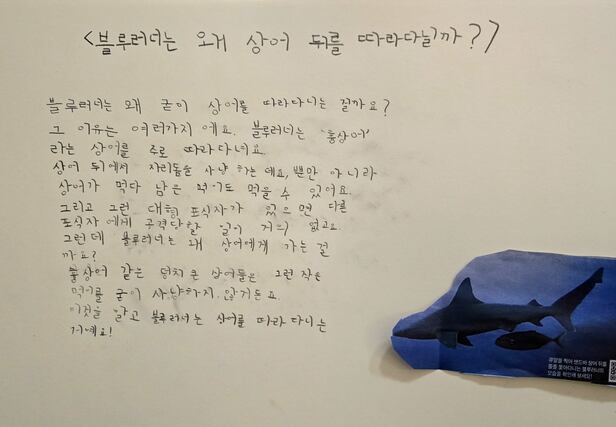 <블루러너는 왜 상어 뒤를 따라다닐까?>
블루러너는 왜 굳이 상어를 따라다니는 걸까요?
그 이유는 여러가지 에요. 블루러너는 '흉상어'
라는 상어를 주로 따라다녀요.
상어 뒤에서 자리돔을 사냥 하는 데요, 뿐만 아니라
상어가 먹다 남은 먹이도 먹을 수 있어요.
그리고 그런 대형 포식자가 있으면 다른
포식자 에게 공격당할 일이 거의 없고요.
그런데 블루러너는 왜 상어에게 가는 걸
까요?
흉상어 같은 덩치 큰 상어들은 그런 작은
먹이를 굳이 사냥하지 않거든요.
이것을 알고 블루러너는 상어를 따라 다니는
거예요!
큐알을 찍어 샌드바 상어 뒤를
졸졸 쫓아다니는 블루러너의
모습을 확인해 보세요!